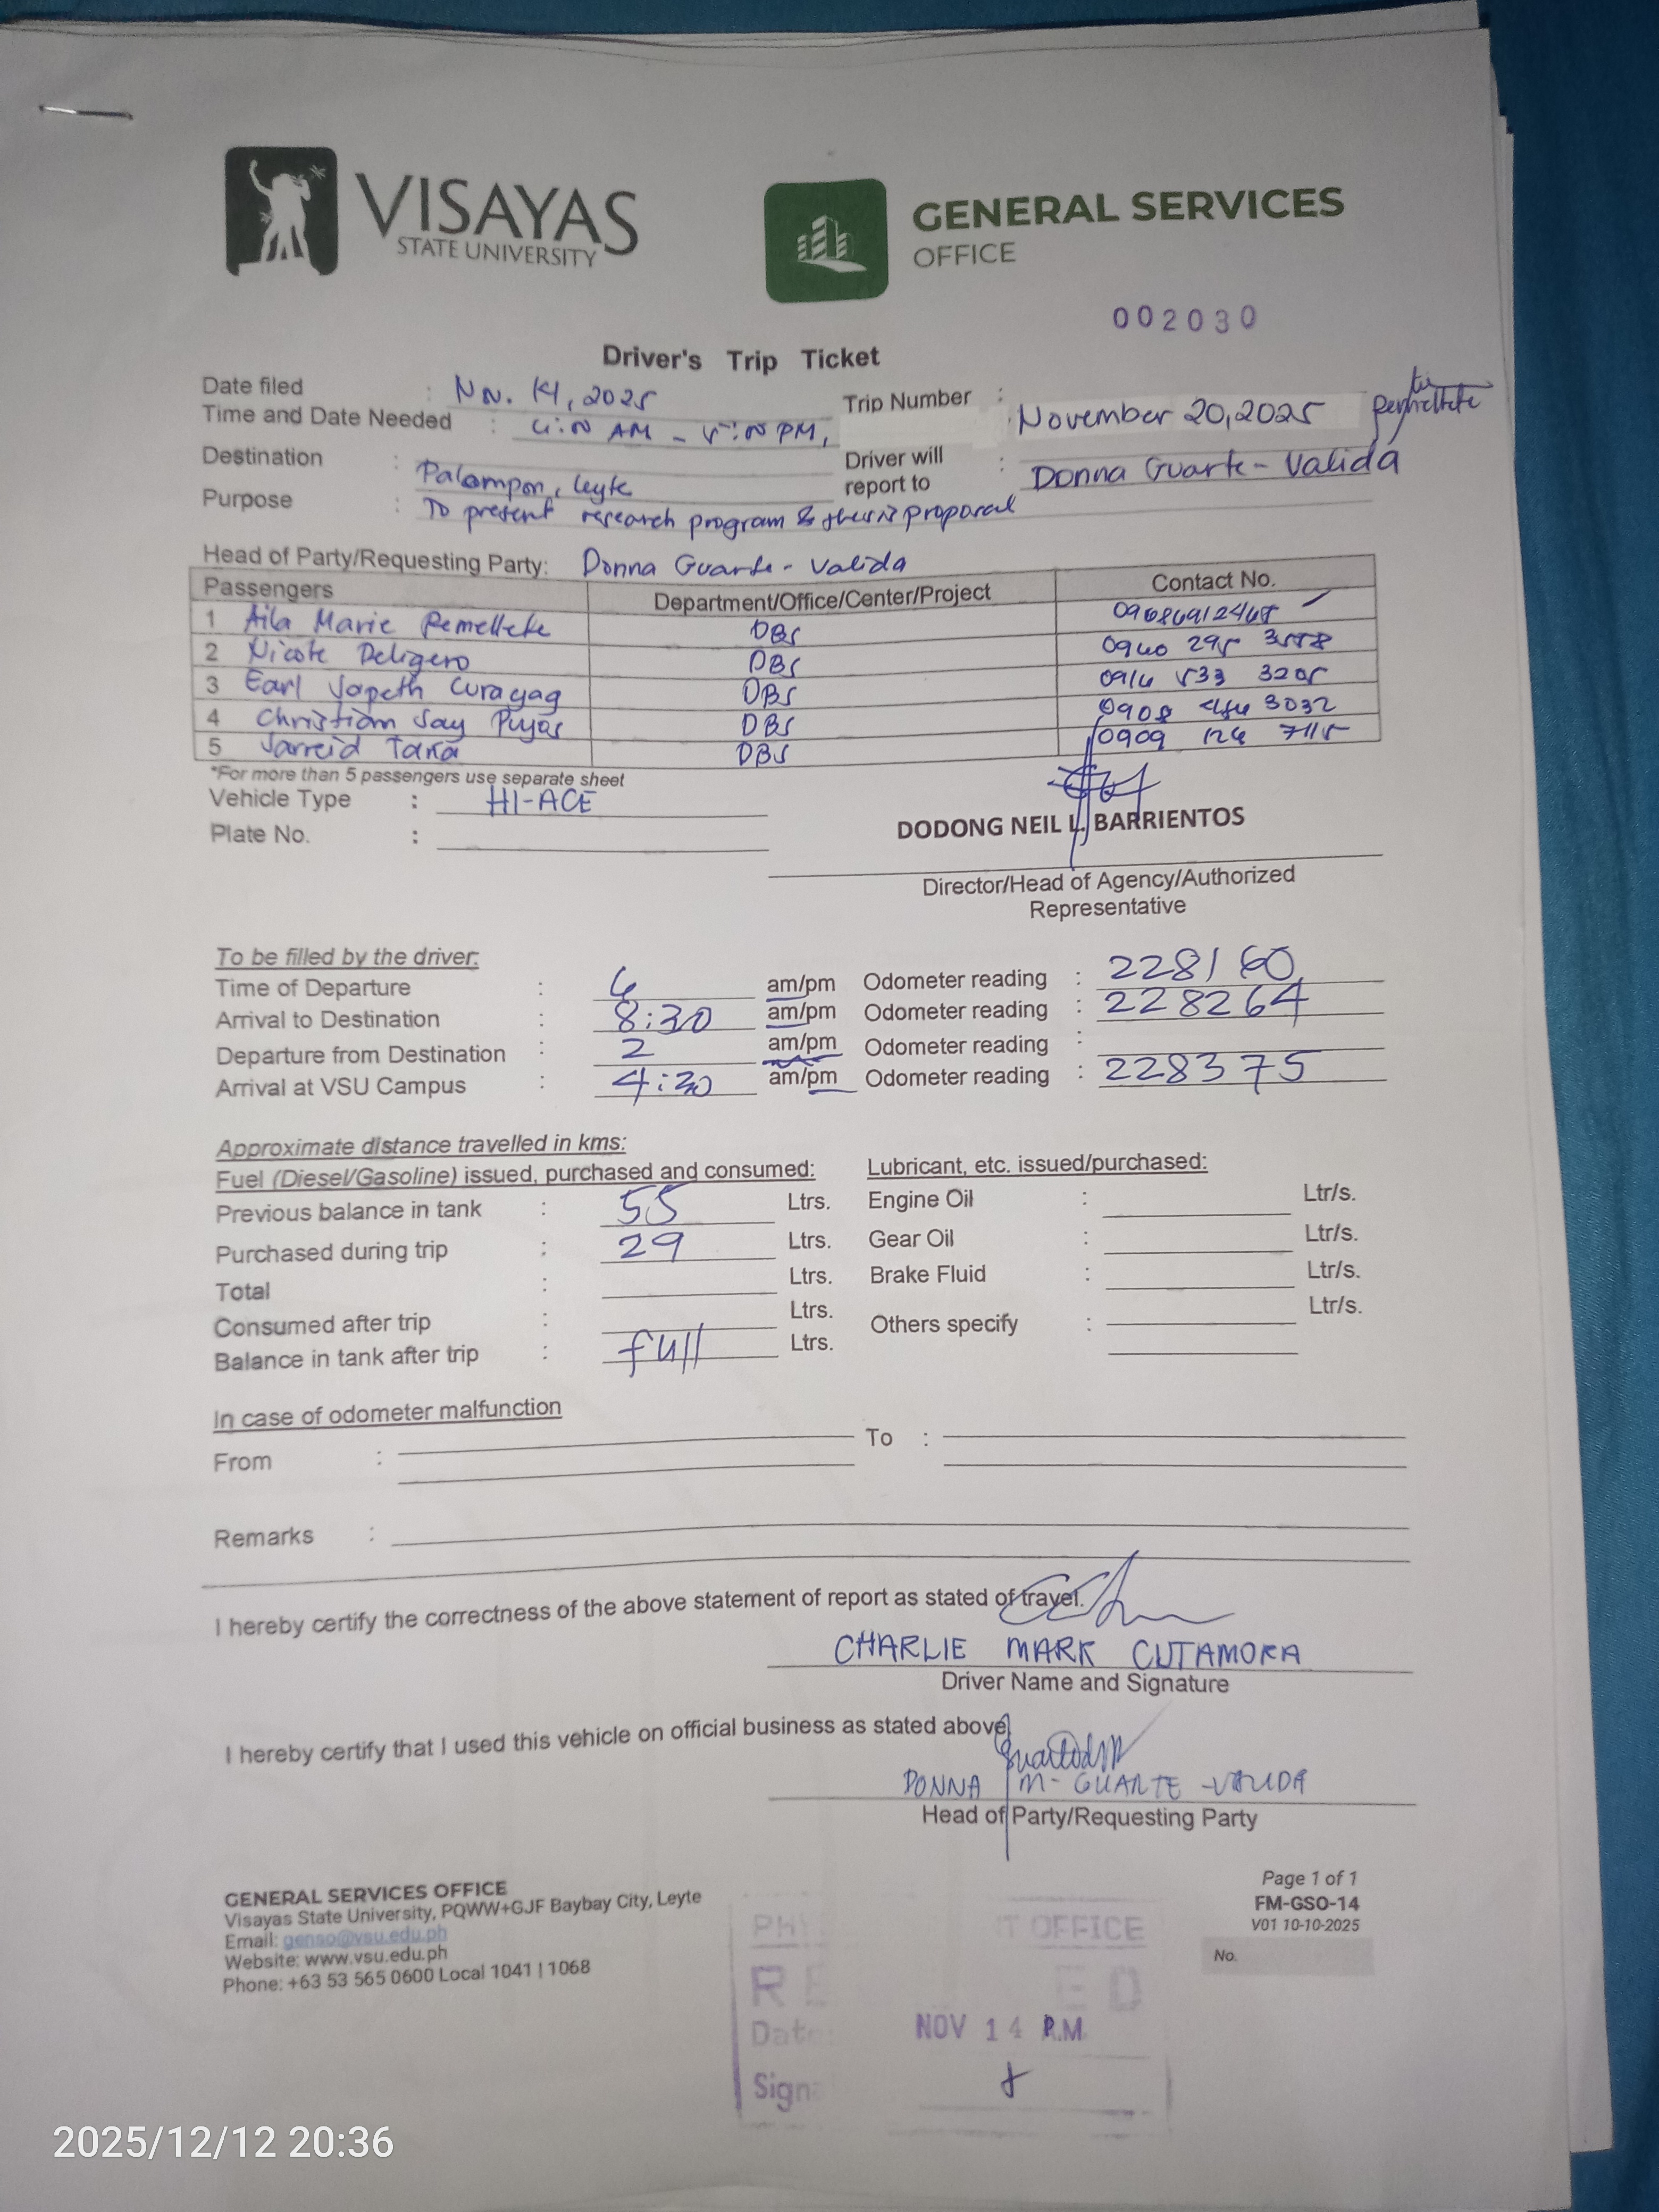 VISAYAS
STATE UNIVERSITY
GENERAL SERVICES
OFFICE
002030
Driver's Trip Ticket
Date filed : Nov. 14, 2025
Trip Number :
Time and Date Needed : 4:00 AM - 5:00 PM, November 20, 2025
Destination : Palompon, Leyte
Driver will report to : Donna Guarte-Valida
Purpose : To present research program & thesis proposal
Head of Party/Requesting Party: Donna Guarte-Valida
Passengers Department/Office/Center/Project Contact No.
1 Aila Marie Remellete DBS
2 Nicole Deligero DBS
3 Earl Japeth Curayag DBS 0916 533 3205
4 Christian Jay Pujas DBS 0908 3032
5 Jarreid Tana DBS 0909 126 7115
*For more than 5 passengers use separate sheet
Vehicle Type : HI-ACE
Plate No. :
DODONG NEIL L. BARRIENTOS
Director/Head of Agency/Authorized
Representative
To be filled by the driver:
Time of Departure : 6 am/pm Odometer reading : 228160
Arrival to Destination : 8:30 am/pm Odometer reading : 228264
Departure from Destination : 2 am/pm Odometer reading :
Arrival at VSU Campus : 4:30 am/pm Odometer reading : 228375
Approximate distance travelled in kms:
Fuel (Diesel/Gasoline) issued, purchased and consumed: Lubricant, etc. issued/purchased:
Previous balance in tank : 55 Ltrs. Engine Oil : Ltr/s.
Purchased during trip : 29 Ltrs. Gear Oil : Ltr/s.
Total : Ltrs. Brake Fluid : Ltr/s.
Consumed after trip : Ltrs. Others specify : Ltr/s.
Balance in tank after trip : full Ltrs.
In case of odometer malfunction
From : To :
Remarks :
I hereby certify the correctness of the above statement of report as stated of travel.
CHARLIE MARK CUTAMORA
Driver Name and Signature
I hereby certify that I used this vehicle on official business as stated above
DONNA M. GUARTE-VALIDA
Head of Party/Requesting Party
GENERAL SERVICES OFFICE
Visayas State University, PQWW+GJF Baybay City, Leyte
Email: genso@vsu.edu.ph
Website: www.vsu.edu.ph
Phone: +63 53 565 0600 Local 1041 | 1068
Page 1 of 1
FM-GSO-14
V01 10-10-2025
No.
OFFICE
NOV 14 P.M.
2025/12/12 20:36